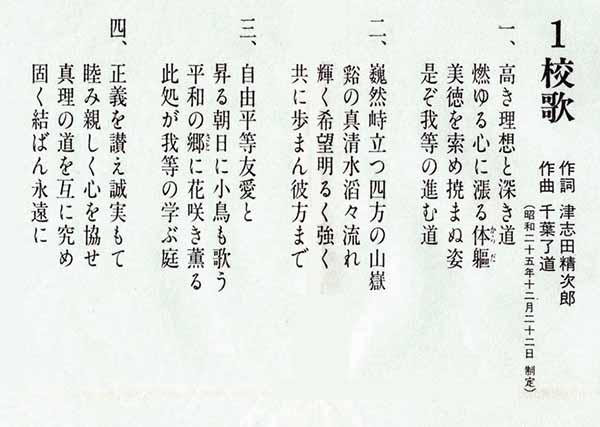 1 校歌
作詞 津志田精次郎
作曲 千葉了道
（昭和二十五年十二月二十二日 制定）
一、高き理想と深き道
燃ゆる心に漲る体軀からだ
美徳を索め撓まぬ姿
是ぞ我等の進む道
二、巍然峙立つ四方の山嶽
谿の真清水滔々流れ
輝く希望明るく強く
共に歩まん彼方まで
三、自由平等友愛と
昇る朝日に小鳥も歌う
平和の郷さとに花咲き薫る
此処が我等の学ぶ庭
四、正義を讃え誠実もて
睦み親しく心を協せ
真理の道を互に究め
固く結ばん永遠に